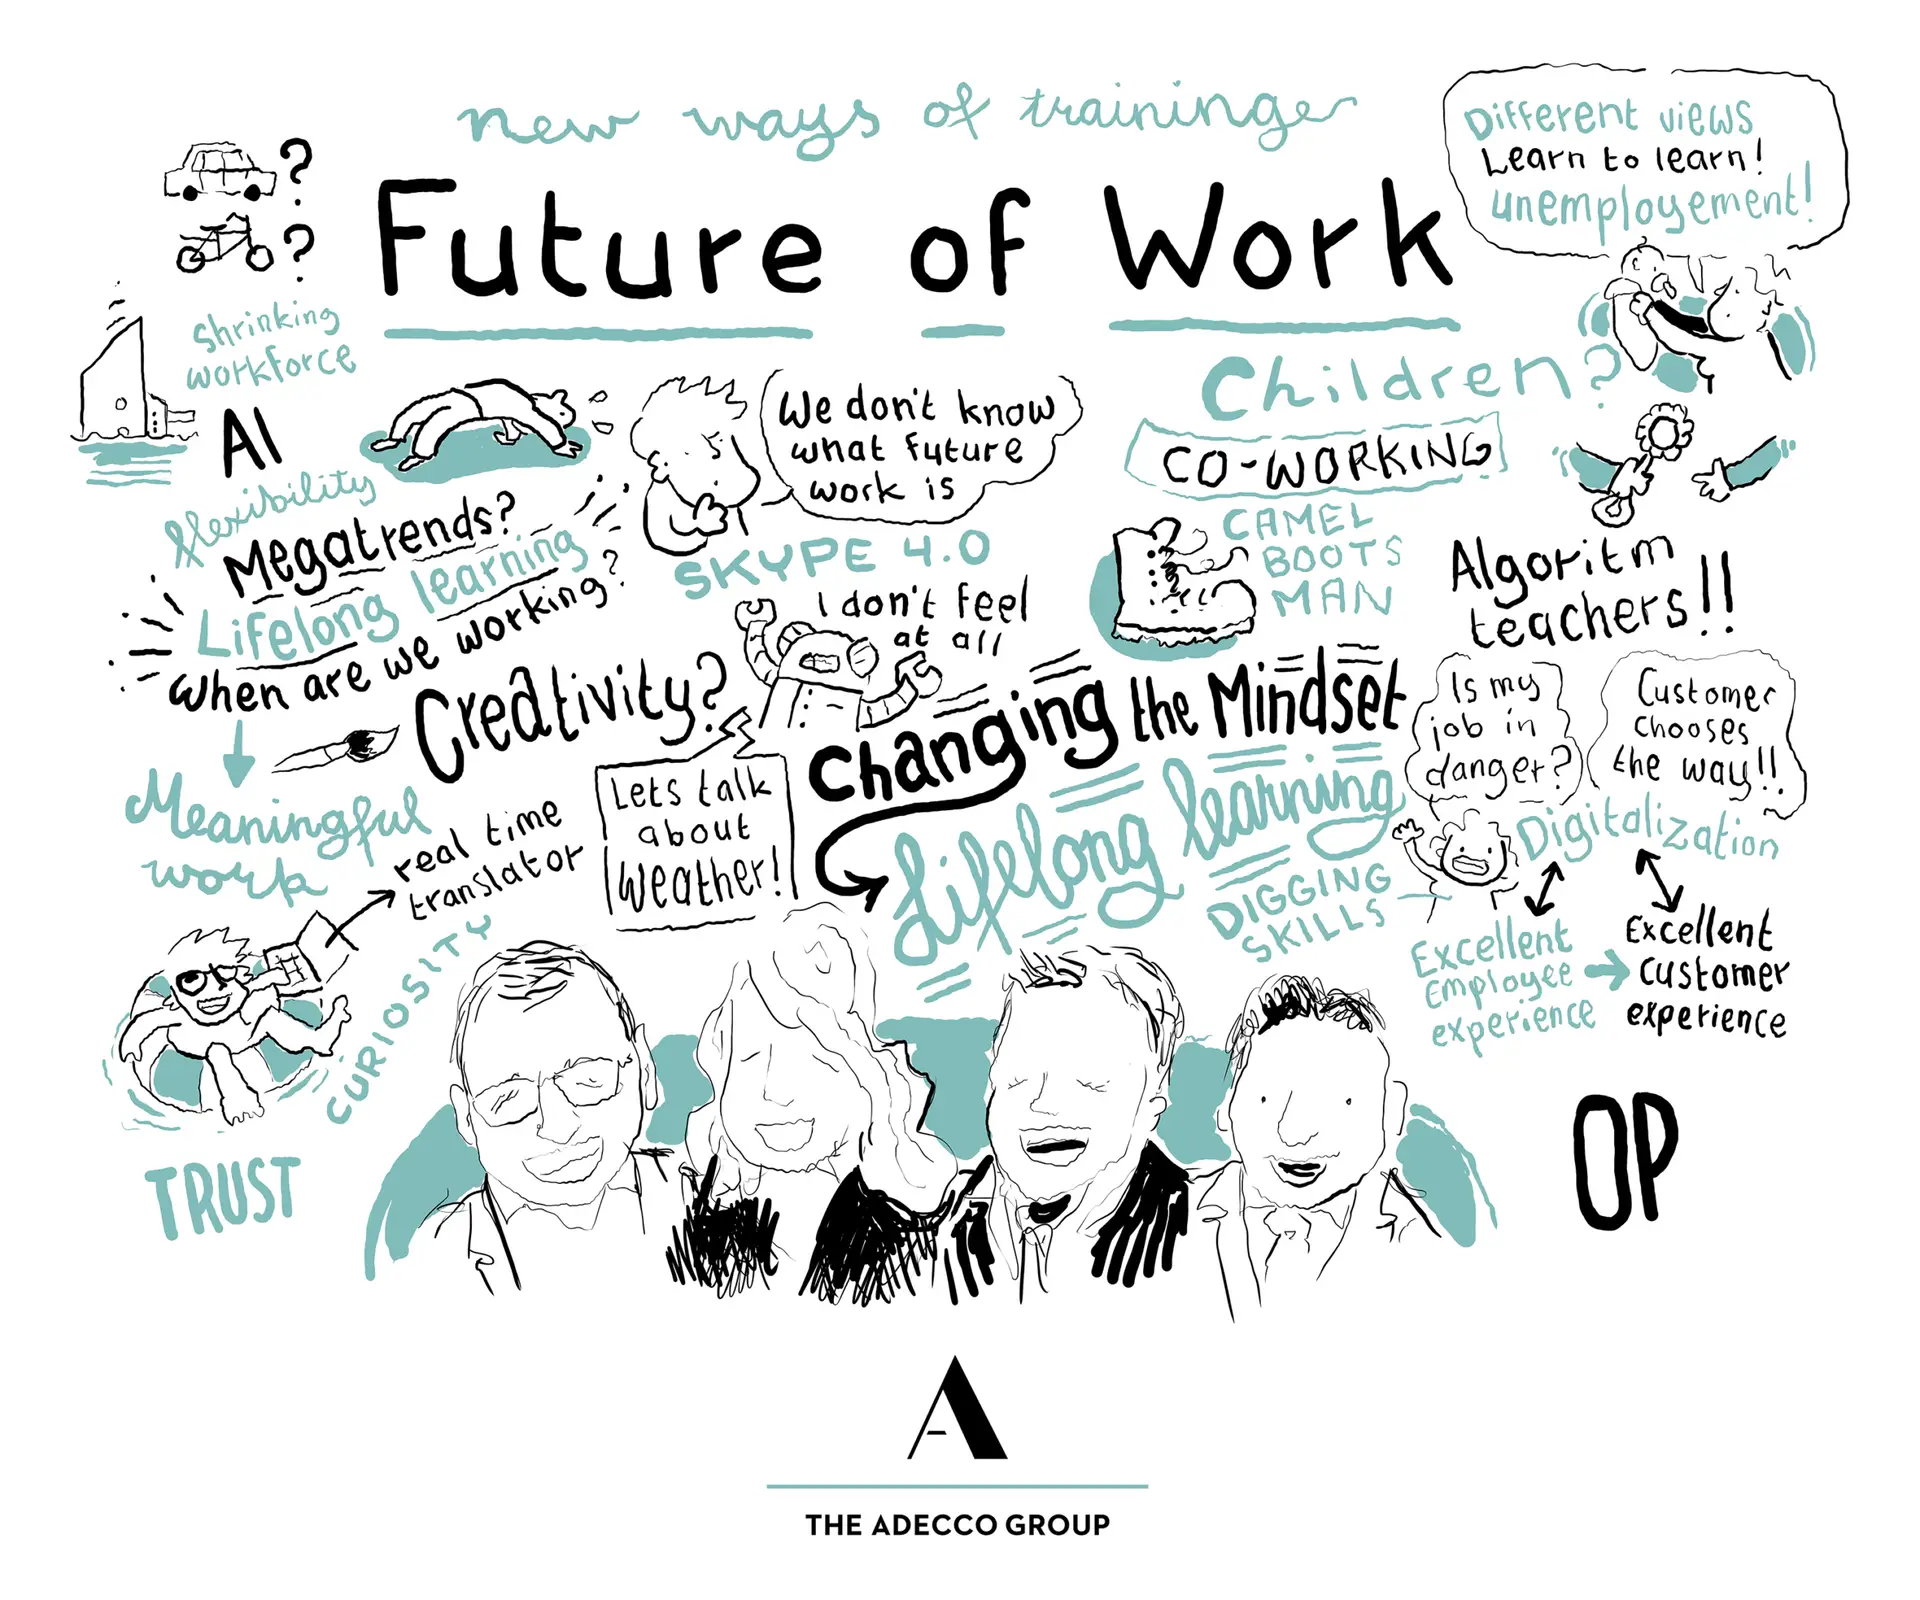 new ways of training
Future of Work
Different views
Learn to learn!
unemployement!
?
?
shrinking
workforce
AI
flexibility
Megatrends?
Lifelong learning
When are we working?
We don't know
what future
work is
SKYPE 4.0
I don't feel
at all
Children?
CO-WORKING
CAMEL
BOOTS
MAN
Algoritm
teachers!!
Creativity?
Changing the Mindset
Lifelong learning
DIGGING
SKILLS
Is my
job in
danger?
Customer
chooses
the way!!
Digitalization
Excellent
Employee
experience
Excellent
customer
experience
Meaningful
work
real time
translator
Lets talk
about
weather!
CURIOSITY
TRUST
OP
A
THE ADECCO GROUP